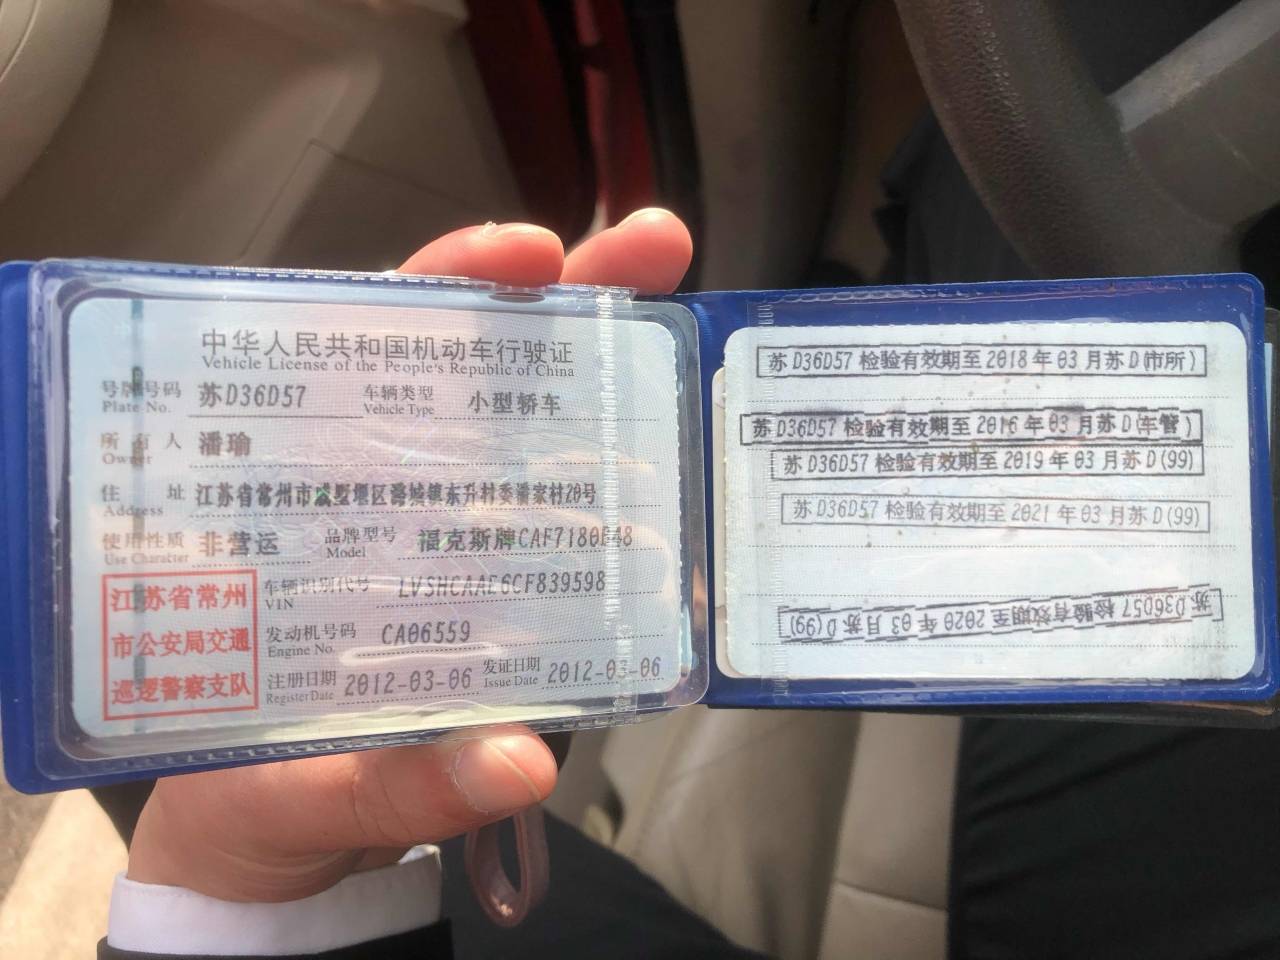 中华人民共和国机动车行驶证
Vehicle License of the People's Republic of China
号牌号码 苏D36D57 车辆类型 小型轿车
Plate No. Vehicle Type
所有人 潘瑜
Owner
住址 江苏省常州市戚墅堰区潞城镇东升村委潘家村20号
Address
使用性质 非营运 品牌型号 福克斯牌CAF7180B48
Use Character Model
车辆识别代号 LVSHCAAE6CF839598
VIN
发动机号码 CA06559
Engine No.
注册日期 2012-03-06 发证日期 2012-03-06
Register Date Issue Date
江苏省常州
市公安局交通
巡逻警察支队
苏D36D57 检验有效期至2018年03月苏D(市所)
苏D36D57 检验有效期至2016年03月苏D(车管)
苏D36D57 检验有效期至2019年03月苏D(99)
苏D36D57 检验有效期至2021年03月苏D(99)
苏D36D57 检验有效期至2020年03月苏D(99)